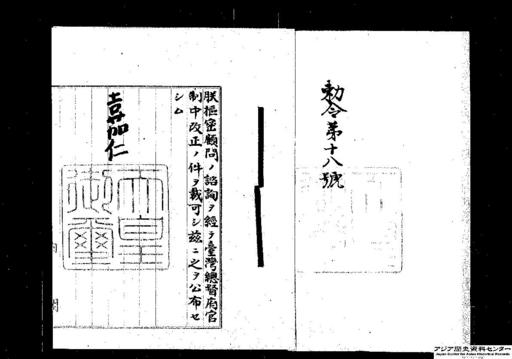 勅令第十八號
朕樞密顧問ノ諮詢ヲ經テ臺灣總督府官
制中改正ノ件ヲ裁可シ茲ニ之ヲ公布セ
シム
嘉仁
天皇
御璽
アジア歴史資料センター
Japan Center for Asian Historical Records